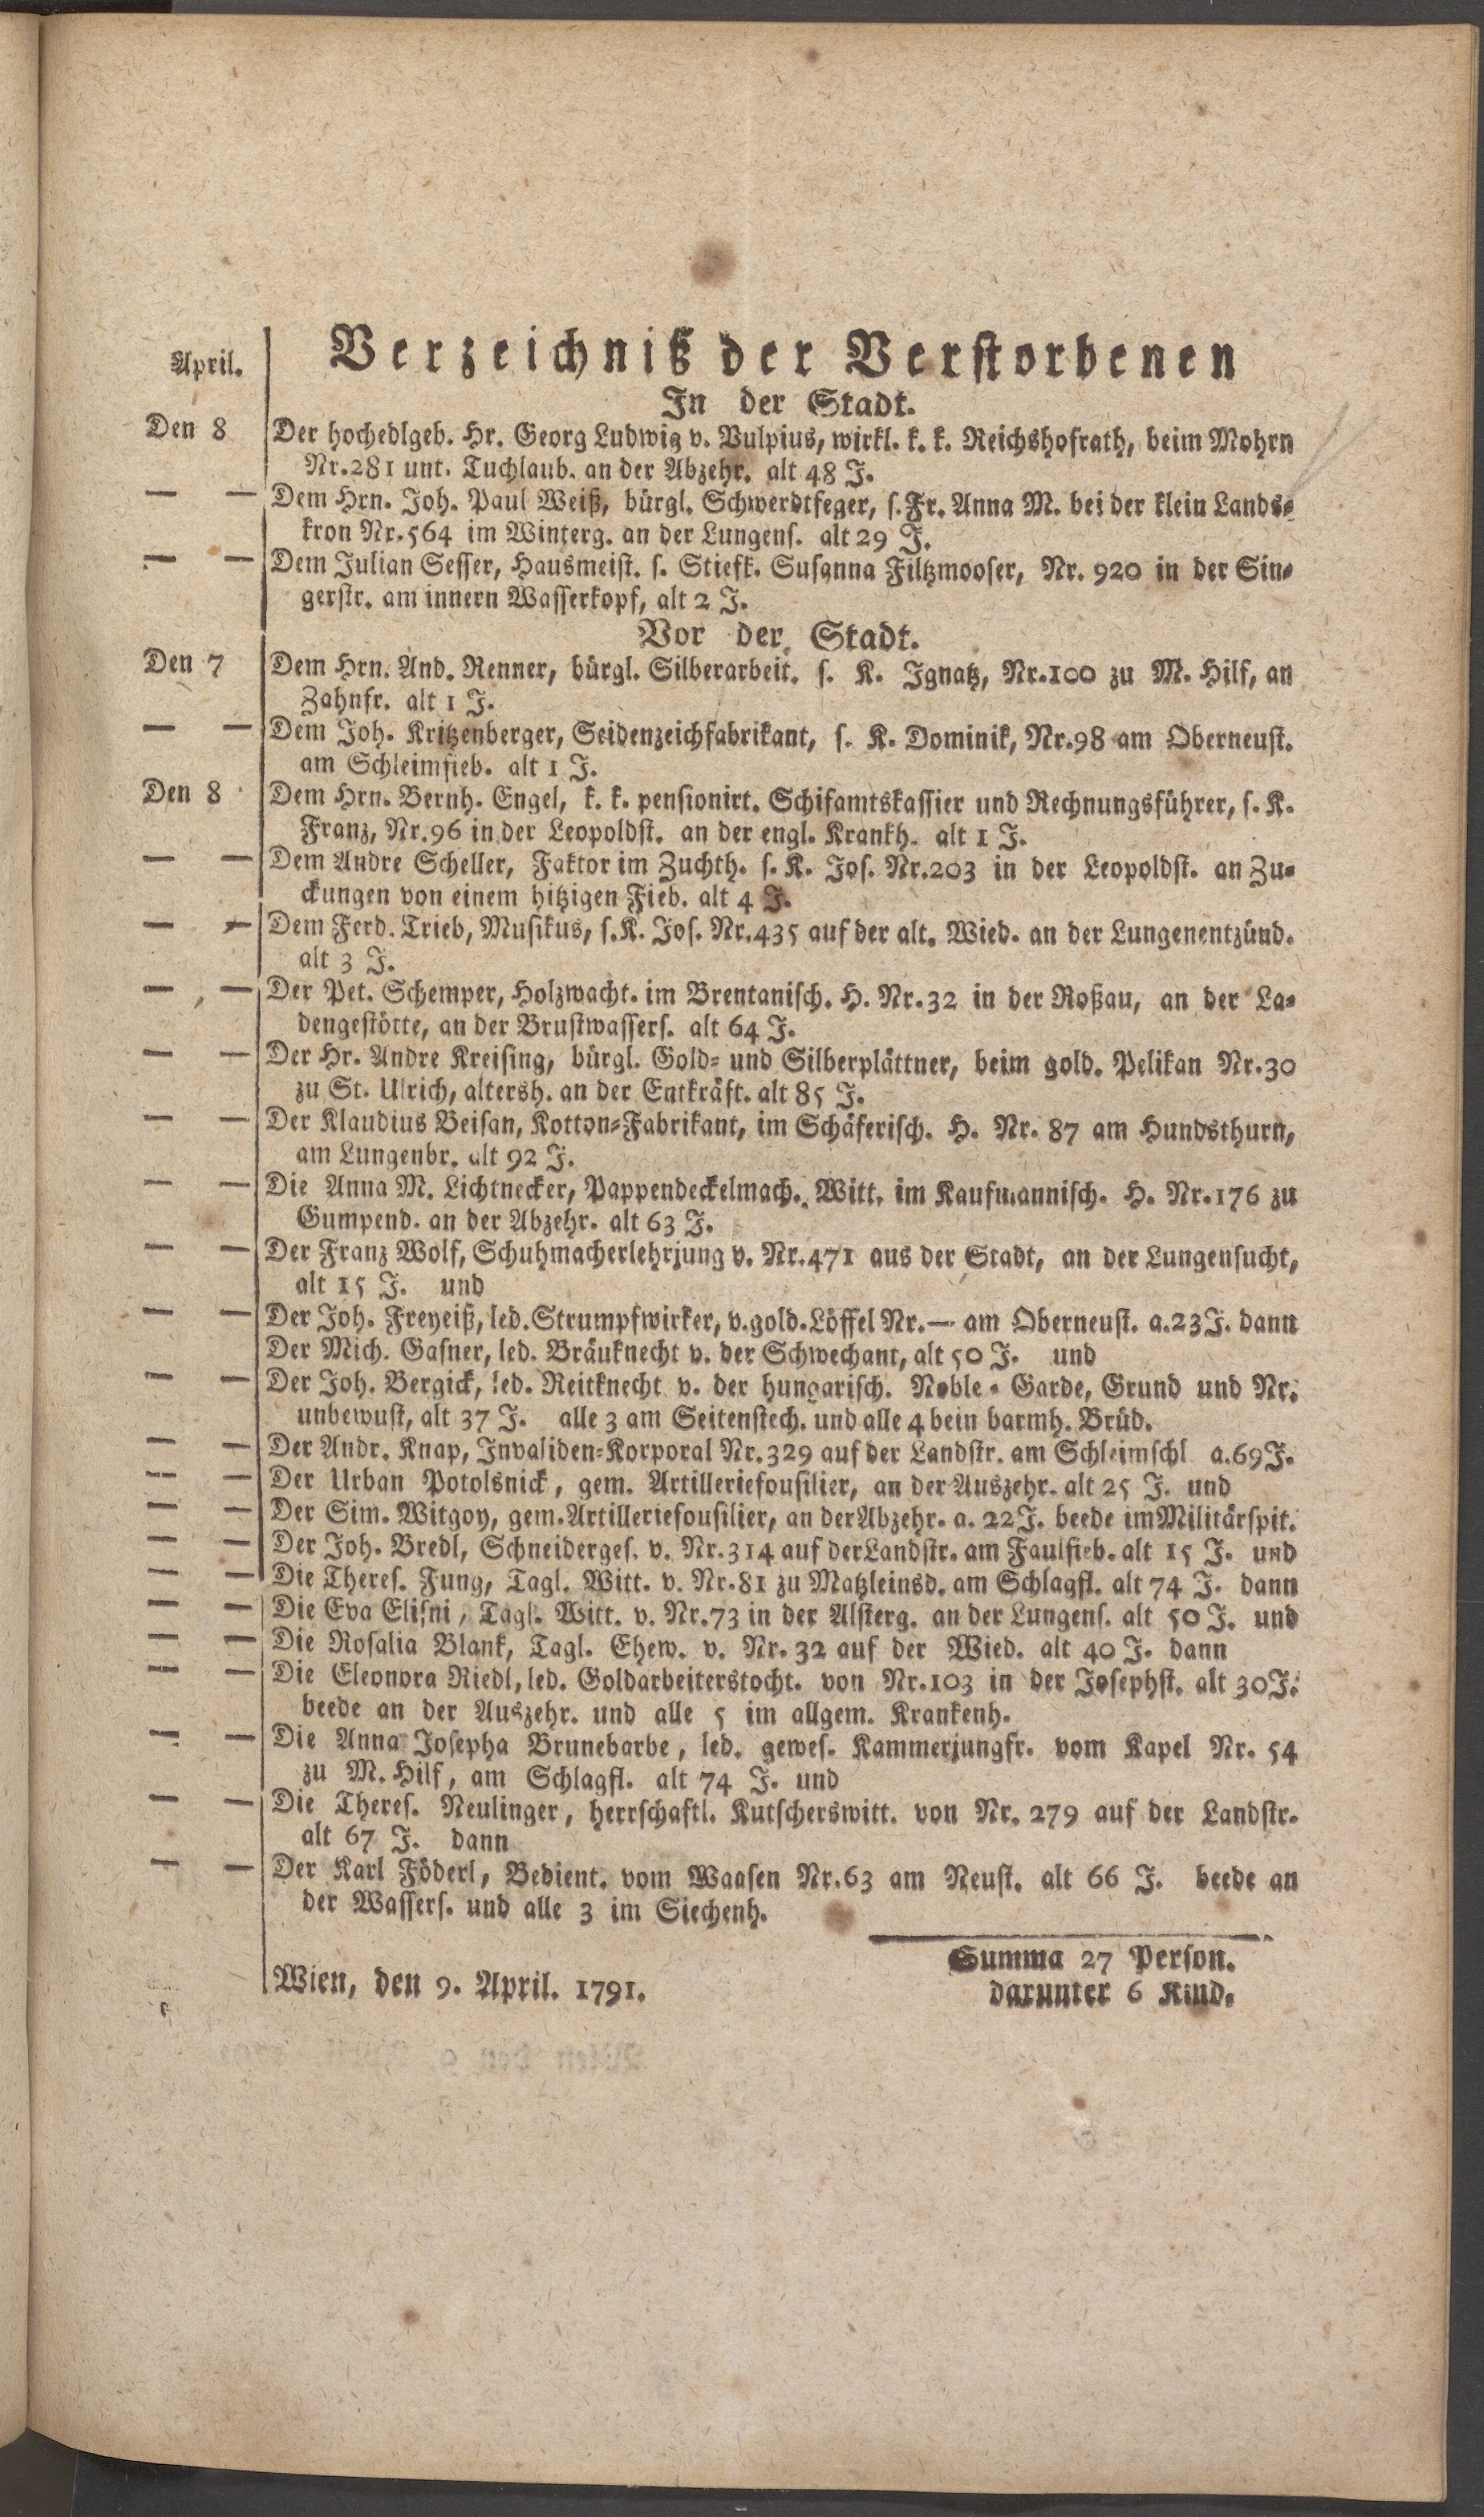 April.
Verzeichniß der Verstorbenen
In der Stadt.
Den 8 Der hochedlgeb. Hr. Georg Ludwig v. Vulpius, wirkl. k. k. Reichshofrath, beim Mohrn
Nr. 281 unt. Tuchlaub. an der Abzehr. alt 48 J.
— — Dem Hrn. Joh. Paul Weiß, bürgl. Schwerdtfeger, s. Fr. Anna M. bei der klein Lands-
kron Nr. 564 im Winterg. an der Lungens. alt 29 J.
— — Dem Julian Sesser, Hausmeist. s. Stiefk. Susanna Filtzmooser, Nr. 920 in der Sin-
gerstr. am innern Wasserkopf, alt 2 J.
Vor der Stadt.
Den 7 Dem Hrn. And. Renner, bürgl. Silberarbeit. s. K. Ignatz, Nr. 100 zu M. Hilf, an
Zahnfr. alt 1 J.
— — Dem Joh. Kritzenberger, Seidenzeichfabrikant, s. K. Dominik, Nr. 98 am Oberneust.
am Schleimfieb. alt 1 J.
Den 8 Dem Hrn. Bernh. Engel, k. k. pensionirt. Schifamtskassier und Rechnungsführer, s. K.
Franz, Nr. 96 in der Leopoldst. an der engl. Krankh. alt 1 J.
— — Dem Andre Scheller, Faktor im Zuchth. s. K. Jos. Nr. 203 in der Leopoldst. an Zu-
ckungen von einem hitzigen Fieb. alt 4 J.
— — Dem Ferd. Trieb, Musikus, s. K. Jos. Nr. 435 auf der alt. Wied. an der Lungenentzünd.
alt 3 J.
— — Der Pet. Schemper, Holzwacht. im Brentanisch. H. Nr. 32 in der Roßau, an der La-
dengestötte, an der Brustwassers. alt 64 J.
— — Der Hr. Andre Kreising, bürgl. Gold- und Silberplättner, beim gold. Pelikan Nr. 30
zu St. Ulrich, altersh. an der Entkräft. alt 85 J.
— — Der Klaudius Beisan, Kotton-Fabrikant, im Schäferisch. H. Nr. 87 am Hundsthurn,
am Lungenbr. alt 92 J.
— — Die Anna M. Lichtnecker, Pappendeckelmach. Witt. im Kaufmannisch. H. Nr. 176 zu
Gumpend. an der Abzehr. alt 63 J.
— — Der Franz Wolf, Schuhmacherlehrjung v. Nr. 471 aus der Stadt, an der Lungensucht,
alt 15 J. und
— — Der Joh. Freyeiß, led. Strumpfwirker, v. gold. Löffel Nr. — am Oberneust. a. 23 J. dann
Der Mich. Gasner, led. Bräuknecht v. der Schwechant, alt 50 J. und
— — Der Joh. Bergick, led. Reitknecht v. der hungarisch. Noble-Garde, Grund und Nr.
unbewust, alt 37 J. alle 3 am Seitenstech. und alle 4 bein barmh. Brüd.
— — Der Andr. Knap, Invaliden-Korporal Nr. 329 auf der Landstr. am Schleimschl a. 69 J.
— — Der Urban Potolsnick, gem. Artilleriefousilier, an der Auszehr. alt 25 J. und
— — Der Sim. Witgoy, gem. Artilleriefousilier, an der Abzehr. a. 22 J. beede im Militärspit.
— — Der Joh. Bredl, Schneiderges. v. Nr. 314 auf der Landstr. am Faulfieb. alt 15 J. und
— — Die Theres. Fung, Tagl. Witt. v. Nr. 81 zu Matzleinsd. am Schlagfl. alt 74 J. dann
— — Die Eva Elisni, Tagl. Witt. v. Nr. 73 in der Alsterg. an der Lungens. alt 50 J. und
— — Die Rosalia Blank, Tagl. Ehew. v. Nr. 32 auf der Wied. alt 40 J. dann
— — Die Eleonora Riedl, led. Goldarbeiterstocht. von Nr. 103 in der Josephst. alt 30 J.
beede an der Auszehr. und alle 5 im allgem. Krankenh.
— — Die Anna Josepha Brunebarbe, led. gewes. Kammerjungfr. vom Kapel Nr. 54
zu M. Hilf, am Schlagfl. alt 74 J. und
— — Die Theres. Neulinger, herrschaftl. Kutscherswitt. von Nr. 279 auf der Landstr.
alt 67 J. dann
— — Der Karl Föderl, Bedient. vom Waasen Nr. 63 am Neust. alt 66 J. beede an
der Wassers. und alle 3 im Siechenh.
Summa 27 Person.
Wien, den 9. April. 1791.
darunter 6 Kind.